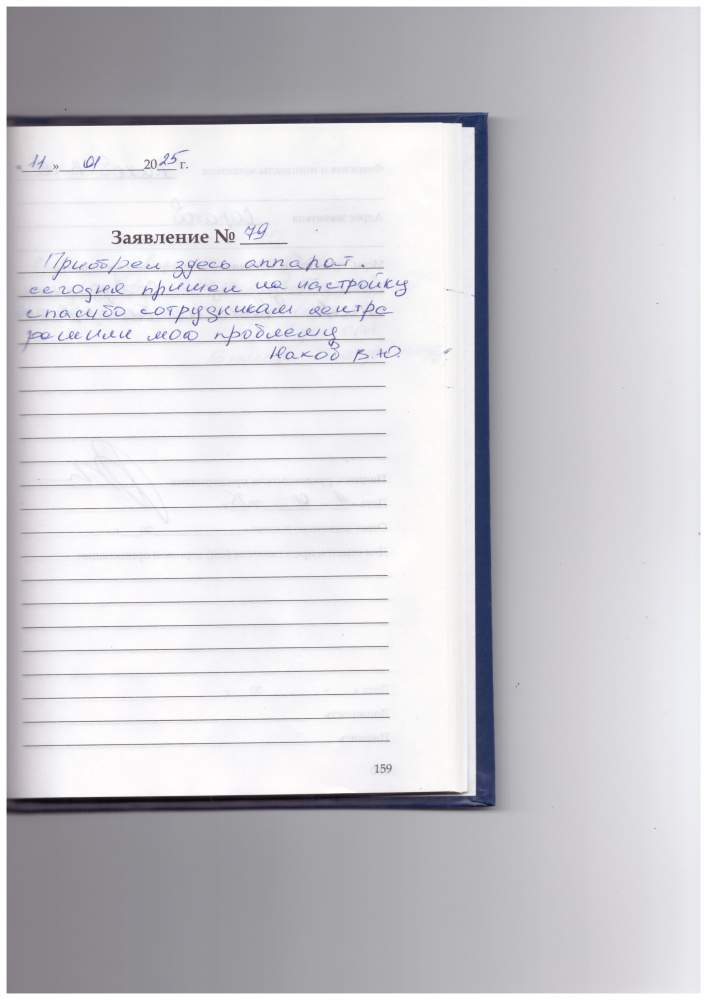 «11» 01 2025 г.
Заявление № 79
Приобрел здесь аппарат.
сегодня пришел на настройку
спасибо сотрудникам центра
решили мою проблему
В.Ю.
159